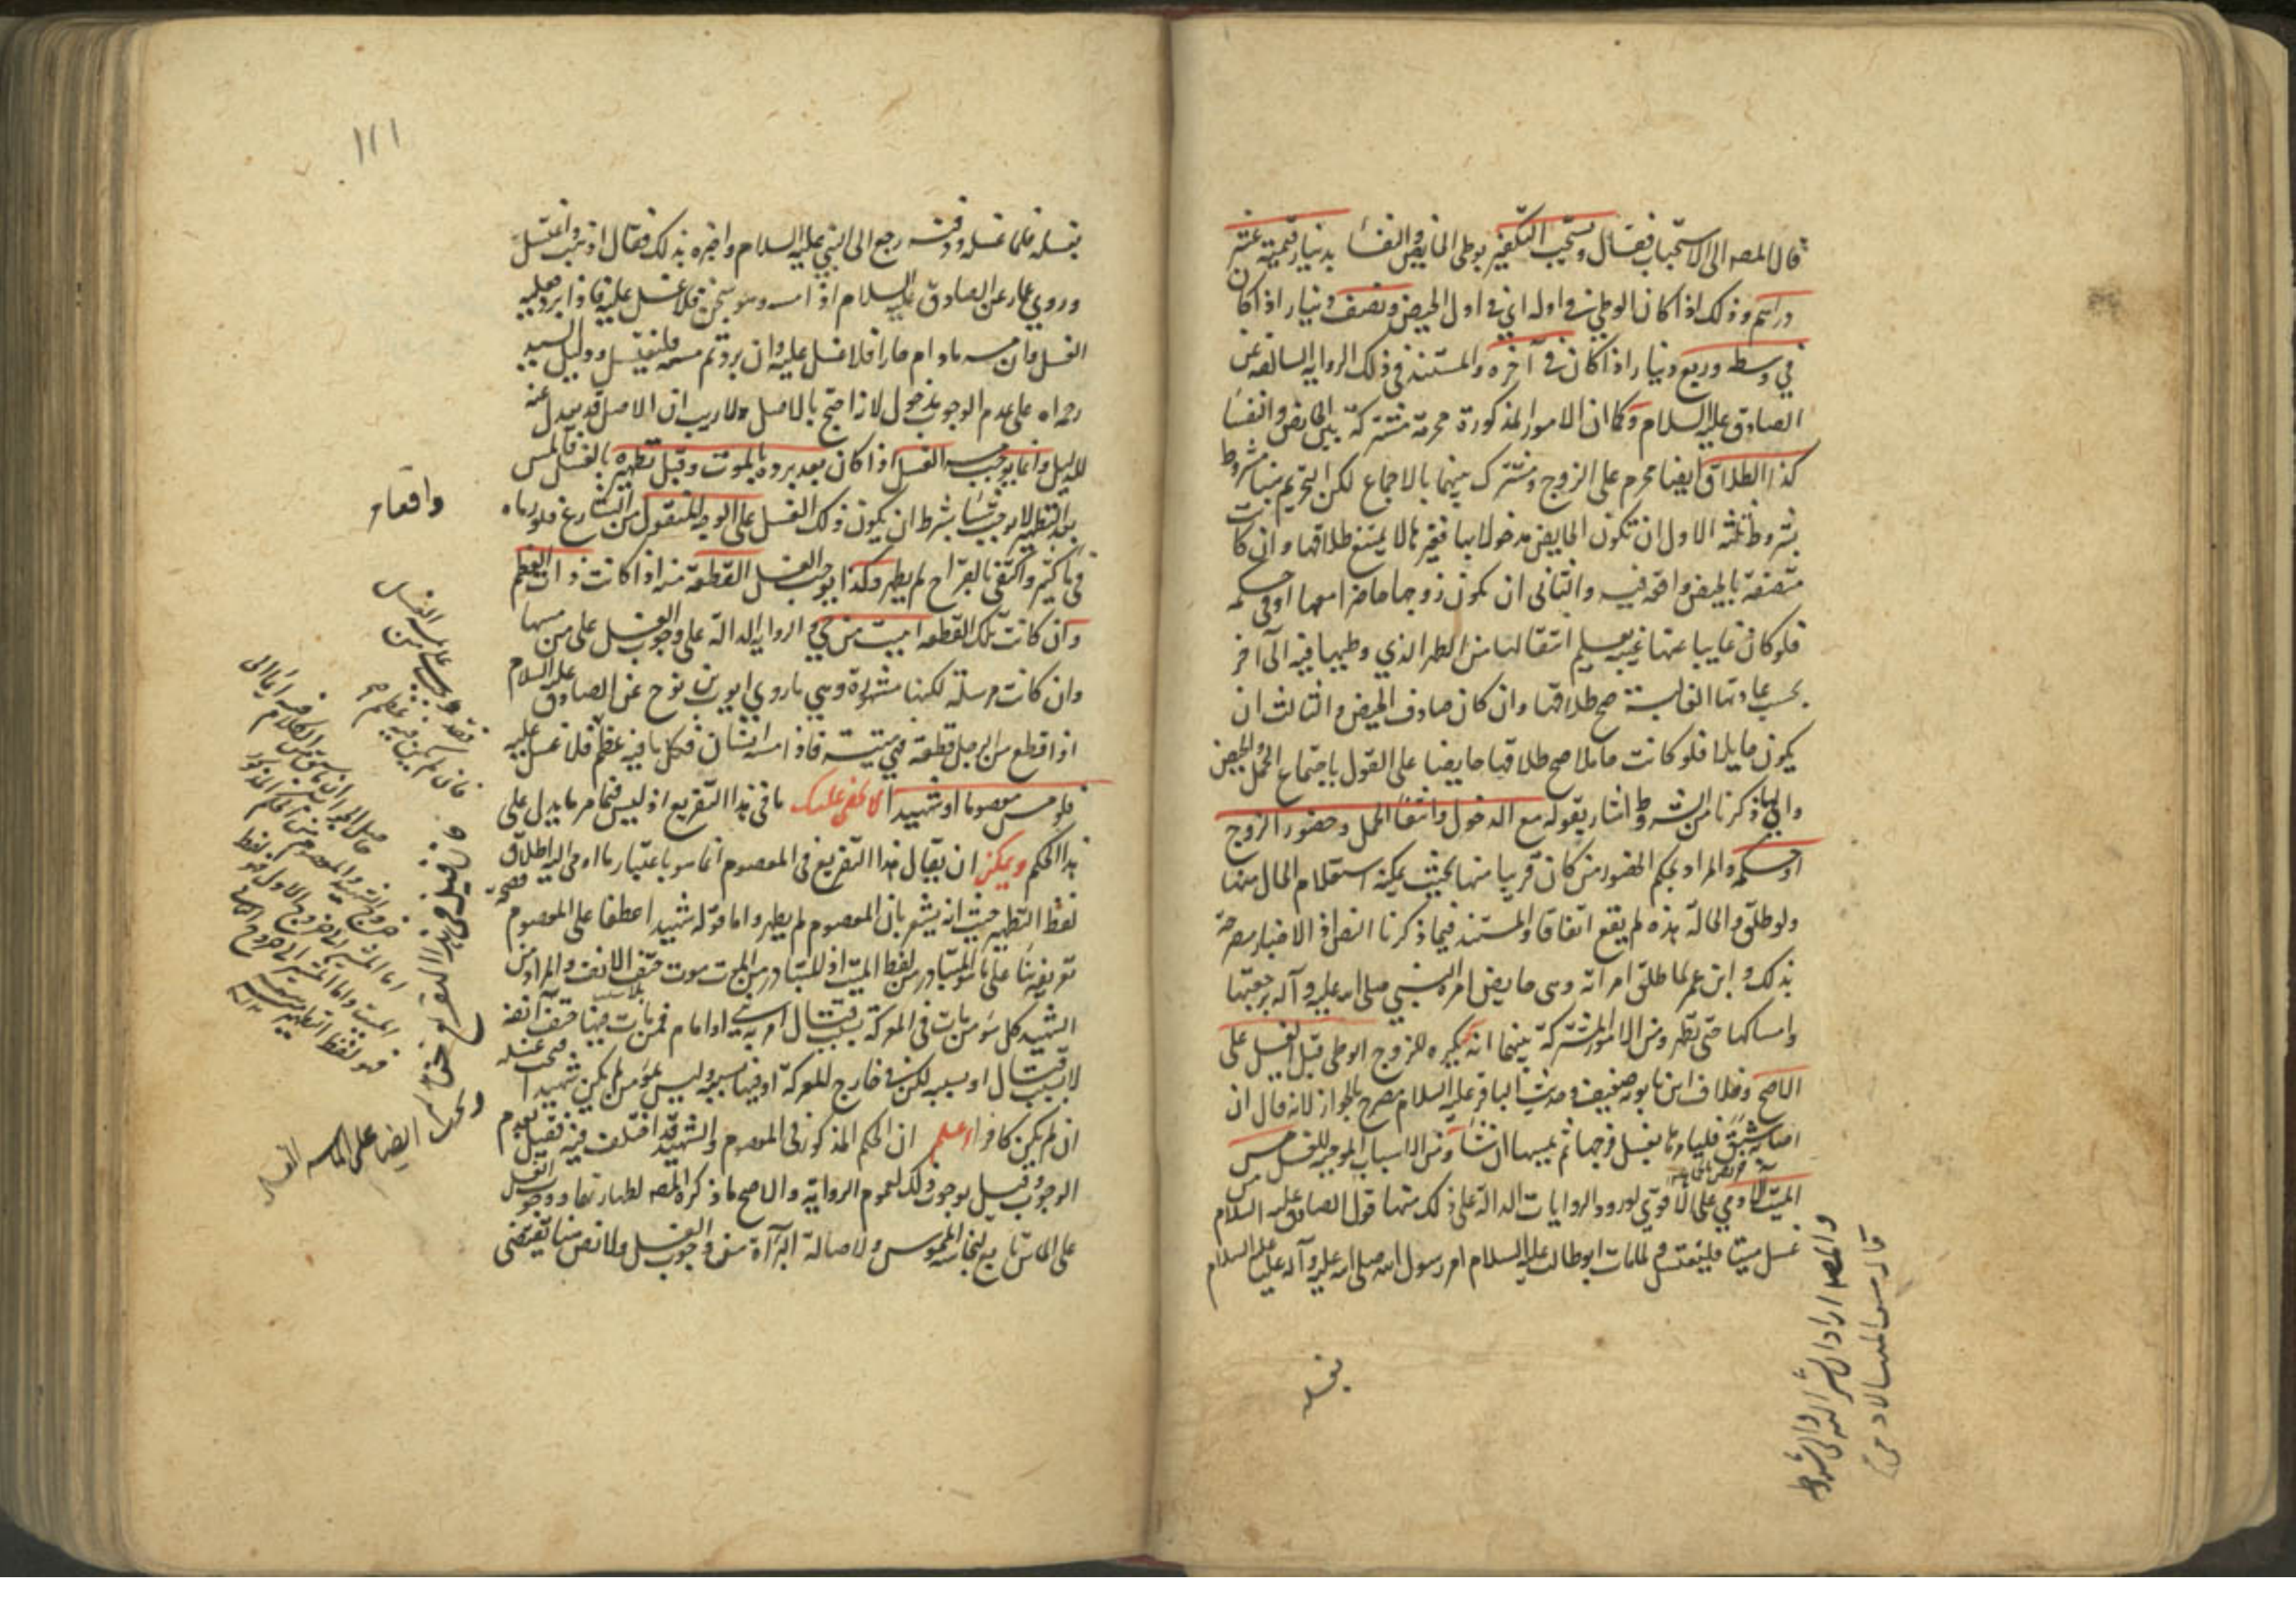 قال المصه الى الاستحباب فقال ويستحب التكفير بوطى الحايض والنفسا بدينار قيمته عشرة
دراهم وذلك اذا كان الوطي في اوله اي في اول الحيض ونصف دينار اذا كان
في وسطه وربع دينار اذا كان في آخره والمستند في ذلك الرواية السالفة عن
الصادق عليه السلام وكما ان الامور المذكورة محرمة مشتركة بين الحايض والنفسا
كذا الطلاق ايضا محرم على الزوج ومشترك بينهما بالاجماع لكن التحريم هنا مشروط
بشروط ثلثة الاول ان تكون الحايض مدخولا بها فغيرها لا يمتنع طلاقها وان كانت
متصفة بالحيض واقعة فيه والثاني ان يكون زوجها حاضرا معها او في حكمه
فلو كان غايبا عنها غيبة يعلم انتقالها من الطهر الذي وطيها فيه الى آخر
بحسب عادتها الغالبة صح طلاقها وان كان صادف الحيض والثالث ان
يكون حايلا فلو كانت حاملا صح طلاقها حايضا على القول باجتماع الحمل والحيض
والى ما ذكرنا من الشروط اشار بقوله مع الدخول وانتفا الحمل وحضور الزوج
او حكمه والمراد بحكم الحضور من كان قريبا منها بحيث يمكنه استعلام الحال منها
ولو طلق والحالة هذه لم يقع اتفاقا والمستند فيما ذكرنا النص اذ الاخبار مصرحة
بذلك وابن عمر لما طلق امراته وهى حايض امره النبي صلى الله عليه وآله برجعتها
وامساكها حتى تطهر ومن الامور المشتركة بينهما انه يكره للزوج الوطى قبل الغسل على
الاصح وخلاف ابن بابويه ضعيف وحديث الباقر عليه السلام مصرح بالجواز لانه قال ان
اصابه شبق فليامرها بغسل فرجها ثم يمسها ان شاء ومن الاسباب الموجبة للغسل مس
الميت الآدمي على الاقوى لورود الروايات الدالة على ذلك منها قول الصادق عليه السلام من
غسل ميتا فليغتسل ولما مات ابو طالب عليه السلام امر رسول الله صلى الله عليه وآله عليا عليه السلام
بغسله
والمصه اراد
١١١
بغسله فلما غسله ودفنه رجع الى النبي عليه السلام واخبره بذلك فقال اذهب واغتسل
وروي عمار عن الصادق عليه السلام اذا مسه وهو سخن فلا غسل عليه فاذا برد فعليه
الغسل وان مسه مادام حارا فلا غسل عليه وان برد ثم مسه فليغتسل ودليل السيد
رحمه الله على عدم الوجوب مدخول لانه احتج بالاصل ولا ريب ان الاصل قد يعدل عنه
للدليل وانما يوجب مسه الغسل اذا كان بعد برده بالموت وقبل تطهيره بالغسل فالمس
بعد التطهير لا يوجب شيئا بشرط ان يكون ذلك الغسل على الوجه المنقول من الشارع فلو رماه
في ماء كثير واكتفى بالقراح لم يطهر وكذا يوجب الغسل القطعة منه اذا كانت ذات العظم
وان كانت تلك القطعة ابينت من حي والرواية الدالة على وجوب الغسل على من مسها
وان كانت مرسلة لكنها مشهورة وهي ما روي ايوب بن نوح عن الصادق عليه السلام
اذا قطع من الرجل قطعة فهي ميتة فاذا مسه انسان فكل ما فيه عظم فلا غسل عليه
فلو مس معصوما او شهيدا لا يخفى عليك ما في هذا التفريع اذ ليس فيما مر ما يدل على
هذا الحكم ويمكن ان يقال هذا التفريع في المعصوم انما هو باعتبار ما اومى اليه اطلاق
لفظ التطهير حيث انه يشعر بان المعصوم لم يطهر واما قوله شهيدا عطفا على المعصوم
تفريعنا على ما هو المتبادر من لفظ الميت اذ المتبادر من الميت موت حتف الانف والمراد من
الشهيد كل مؤمن مات في المعركة بسبب قتال امر به النبي او امام فمن مات فيها حتف انفه
لا بسبب قتال او بسببه لكن في خارج المعركة او فيها بسببه وليس بمؤمن لم يكن شهيدا
ان لم يكن كافرا اعلم ان الحكم المذكور في المعصوم والشهيد قد اختلف فيه فقيل بعدم
الوجوب وقيل بوجوب ذلك لعموم الرواية والاصح ما ذكره المصه لطهارتهما ووجوب الغسل
على الماس تابع لنجاسة الملموس ولاصالة البرآءة من وجوب الغسل ولا نص هنا يقتضى
فان لم يكن فيه عظم
وان قيل في هذا التفريع